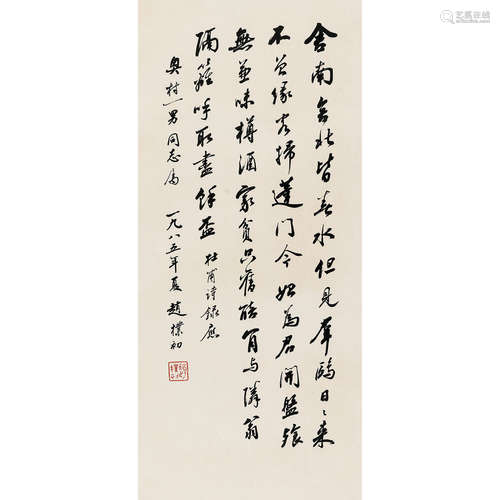 舍南舍北皆春水但見羣鷗日〻來
不曾緣客掃蓬門今始為君開盤飧
無兼味樽酒家貧只舊醅肯與隣翁
隔籬呼取盡餘盃 杜甫詩錄應
奥村一男同志属 一九八五年夏 趙樸初
艺狐在线